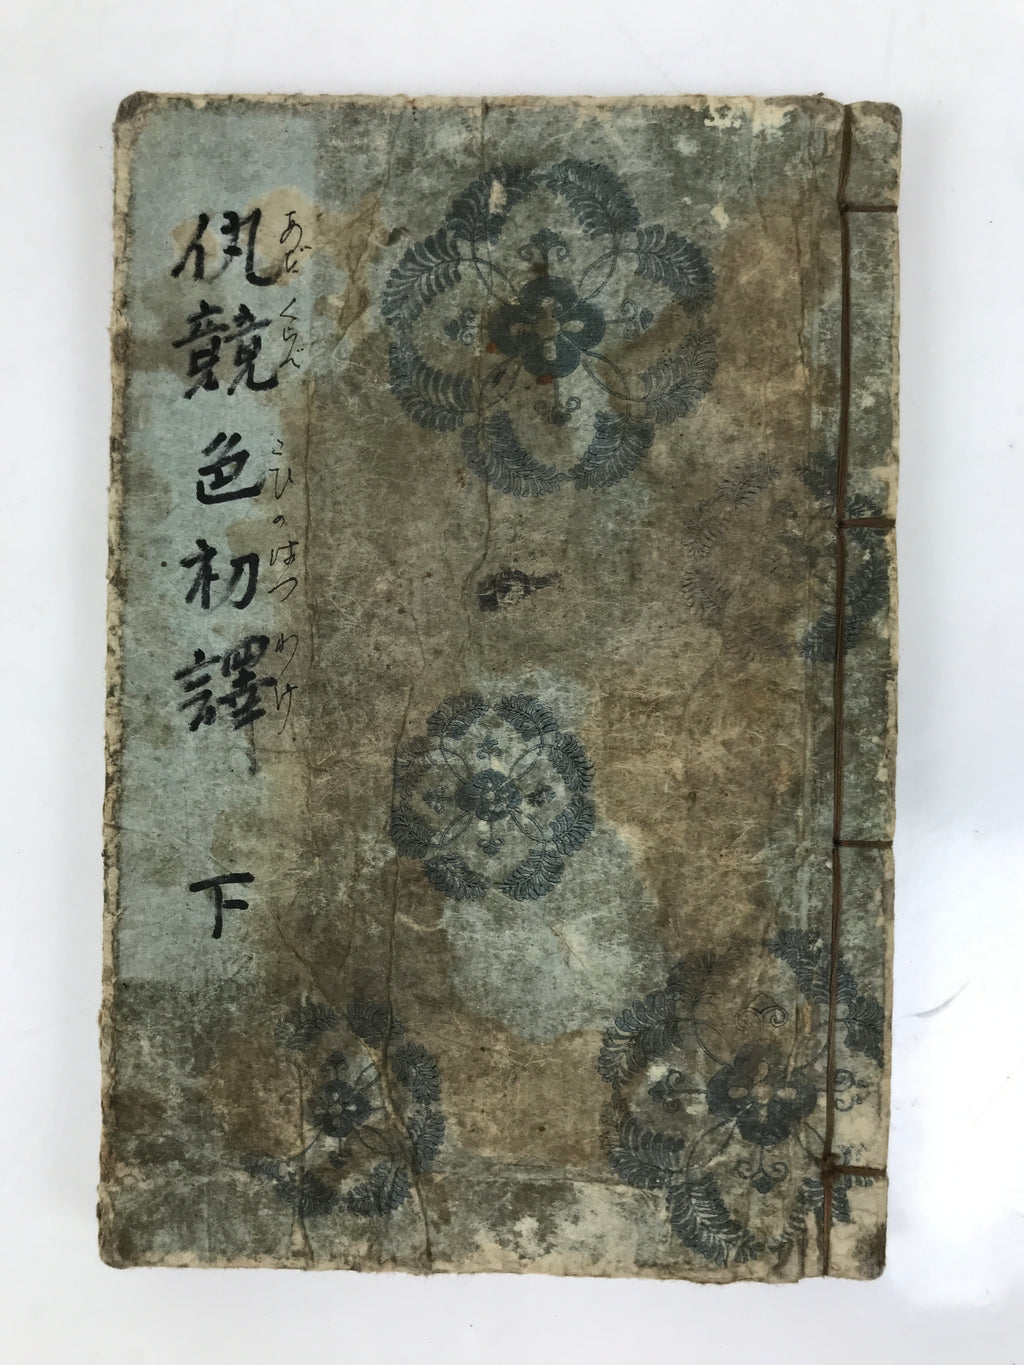 あだくらべ
こひのはつわけ
競色初譯
下